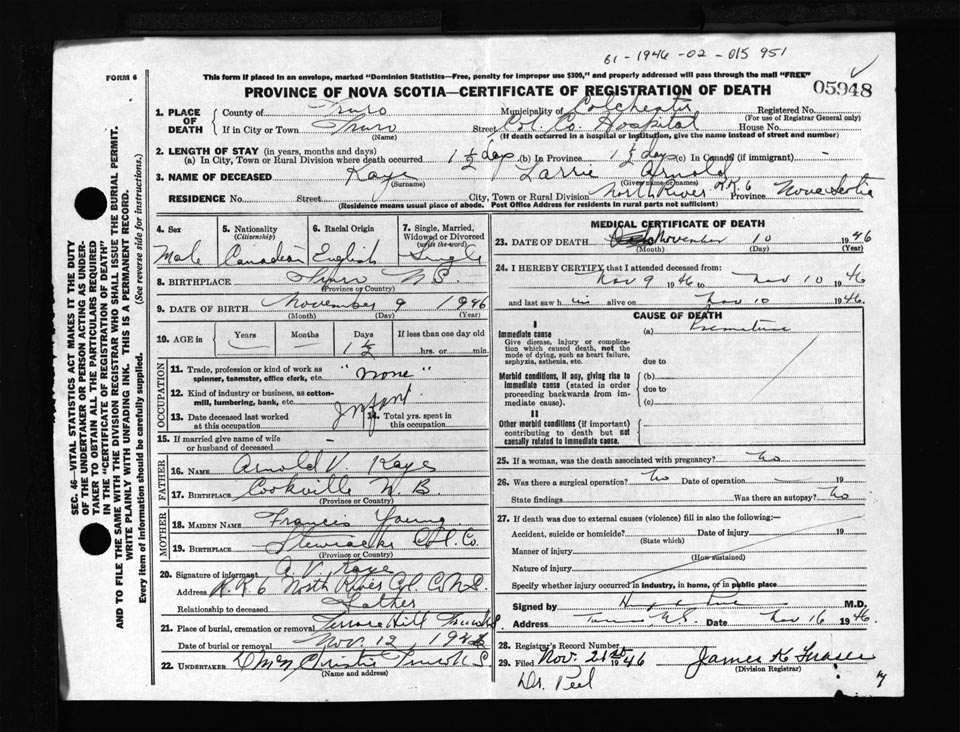 61-1946-02-015 951
FORM 6
This form if placed in an envelope, marked "Dominion Statistics—Free, penalty for improper use $300," and properly addressed will pass through the mail "FREE"
PROVINCE OF NOVA SCOTIA—CERTIFICATE OF REGISTRATION OF DEATH
05948
1. PLACE OF DEATH
County of Truro Municipality of Colchester Registered No.
(For use of Registrar General only)
If in City or Town Truro Street Col. Co. Hospital House No.
(Name) (If death occurred in a hospital or institution, give the name instead of street and number)
2. LENGTH OF STAY (in years, months and days)
(a) In City, Town or Rural Division where death occurred 1½ day (b) In Province 1½ day (c) In Canada (if immigrant) -
3. NAME OF DECEASED Kaye Larrie Arnold
(Surname) (Given name or names)
RESIDENCE No. Street City, Town or Rural Division North River R.R.6 Province Nova Scotia
(Residence means usual place of abode. Post Office Address for residents in rural parts not sufficient)
4. Sex 5. Nationality (Citizenship) 6. Racial Origin 7. Single, Married, Widowed or Divorced (write the word)
Male Canadian English Single
8. BIRTHPLACE Truro N.S.
(Province or Country)
9. DATE OF BIRTH November 9 1946
(Month) (Day) (Year)
10. AGE in Years Months Days If less than one day old
— — 1½ hrs. or min.
OCCUPATION
11. Trade, profession or kind of work as spinner, teamster, office clerk, etc. "None"
12. Kind of industry or business, as cotton-mill, lumbering, bank, etc.
Infant
13. Date deceased last worked at this occupation 14. Total yrs. spent in this occupation
15. If married give name of wife or husband of deceased -
FATHER
16. NAME Arnold V. Kaye
17. BIRTHPLACE Cookville N.B.
(Province or Country)
MOTHER
18. MAIDEN NAME Francis Young
19. BIRTHPLACE Stewiacke Col. Co.
(Province or Country)
20. Signature of informant A. V. Kaye
Address R.R.6 North River Col. Co N.S.
Relationship to deceased Father
21. Place of burial, cremation or removal Terrace Hill Truro N.S.
Date of burial or removal Nov. 12 1946
22. UNDERTAKER Christie Truro N.S.
(Name and address)
MEDICAL CERTIFICATE OF DEATH
23. DATE OF DEATH November 10 1946
(Month) (Day) (Year)
24. I HEREBY CERTIFY that I attended deceased from:
Nov 9 1946 to Nov 10 1946
and last saw h im alive on Nov 10 1946.
CAUSE OF DEATH
I
Immediate cause (a) Premature
Give disease, injury or complication which caused death, not the mode of dying, such as heart failure, asphyxia, asthenia, etc. due to
Morbid conditions, if any, giving rise to immediate cause (stated in order proceeding backwards from immediate cause). (b)
due to
(c)
II
Other morbid conditions (if important) contributing to death but not causally related to immediate cause.
25. If a woman, was the death associated with pregnancy? No
26. Was there a surgical operation? No Date of operation — 19
State findings Was there an autopsy? No
27. If death was due to external causes (violence) fill in also the following:—
Accident, suicide or homicide? Date of injury 19
(State which)
Manner of injury
(How sustained)
Nature of injury
Specify whether injury occurred in industry, in home, or in public place
Signed by M.D.
Address Truro N.S. Date Nov 16 1946.
28. Registrar's Record Number
29. Filed Nov. 21st 1946 James K Fraser
(Division Registrar)
Dr. Peel
7
SEC. 46—VITAL STATISTICS ACT MAKES IT THE DUTY
OF THE UNDERTAKER OR PERSON ACTING AS UNDER-
TAKER TO OBTAIN ALL THE PARTICULARS REQUIRED
IN THE "CERTIFICATE OF REGISTRATION OF DEATH"
AND TO FILE THE SAME WITH THE DIVISION REGISTRAR WHO SHALL ISSUE THE BURIAL PERMIT.
WRITE PLAINLY WITH UNFADING INK. THIS IS A PERMANENT RECORD.
Every item of information should be carefully supplied. (See reverse side for instructions.)